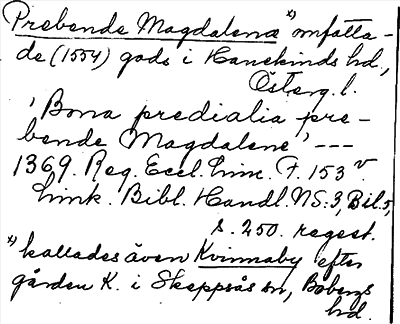 Prebende Magdalenæ x) omfatta-
de (1554) gods i Hanekinds hd.,
Österg. l.
'Bona predialia pre-
bende Magdalene' ---
1369. Reg. Eccl. Linc. F. 153 v.
Link. Bibl. Handl. NS: 3, Bil. 5,
s. 250. regest.
x) kallades även Kvinnaby efter
gården K. i Skeppsås sn, Bobergs
hd.